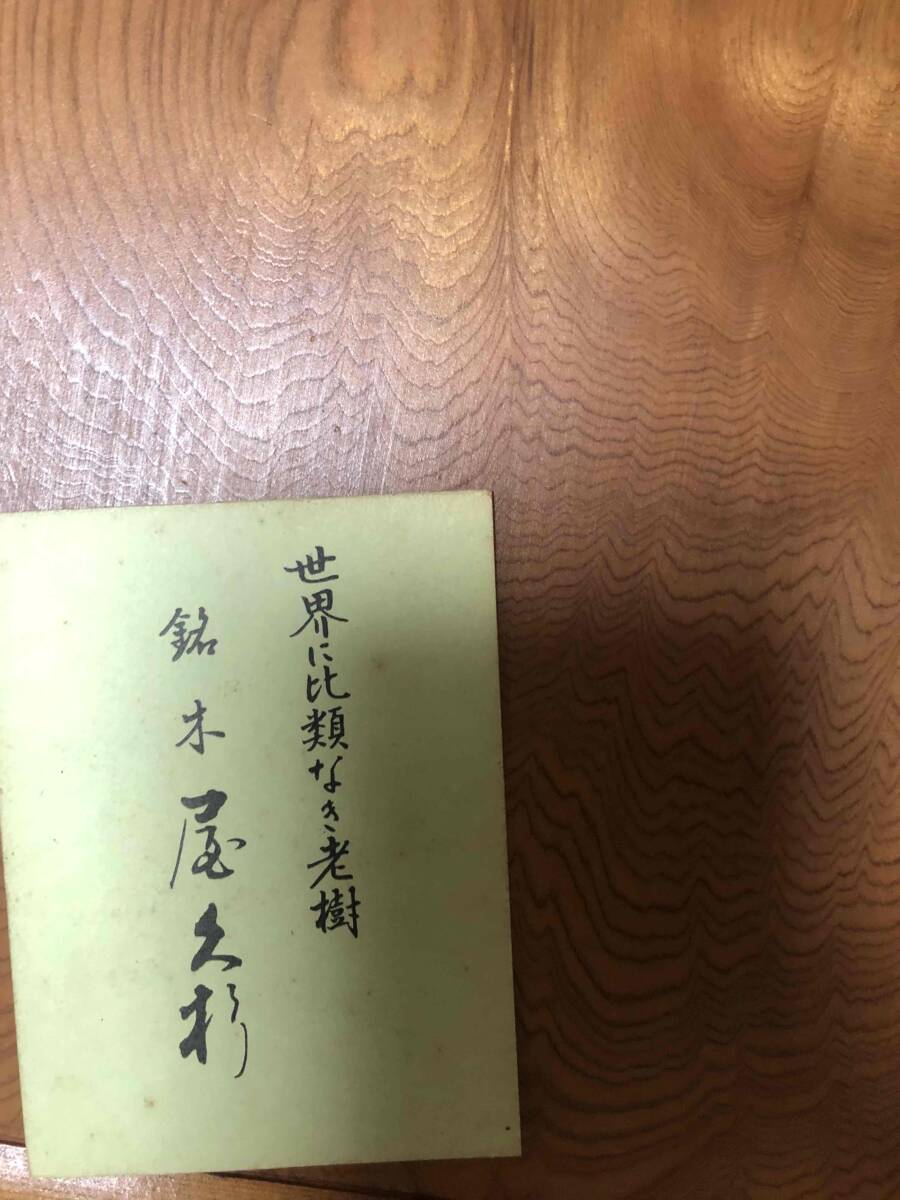 世界に比類なき老樹
銘木屋久杉